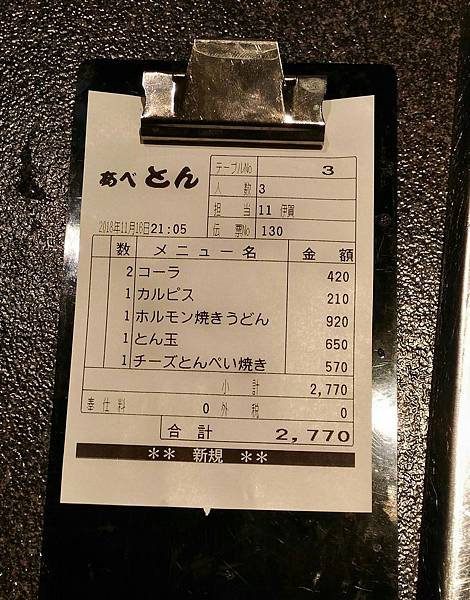 あべとん
テーブルNo 3
人数 3
担当 11 伊賀
2018年11月16日21:05
伝票No 130
数 メニュー名 金額
2 コーラ 420
1 カルピス 210
1 ホルモン焼きうどん 920
1 とん玉 650
1 チーズとんぺい焼き 570
小計 2,770
奉仕料 0 外税 0
合計 2,770
** 新規 **